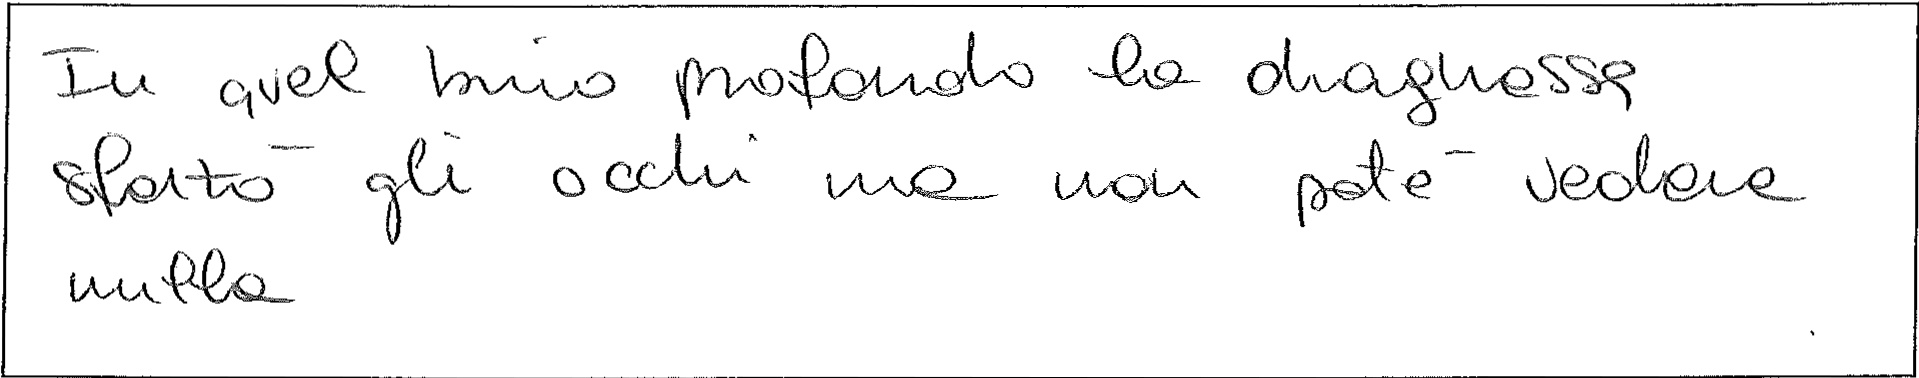 In quel buio profondo la dragnessa
sforzò gli occhi ma non poté vedere
nulla